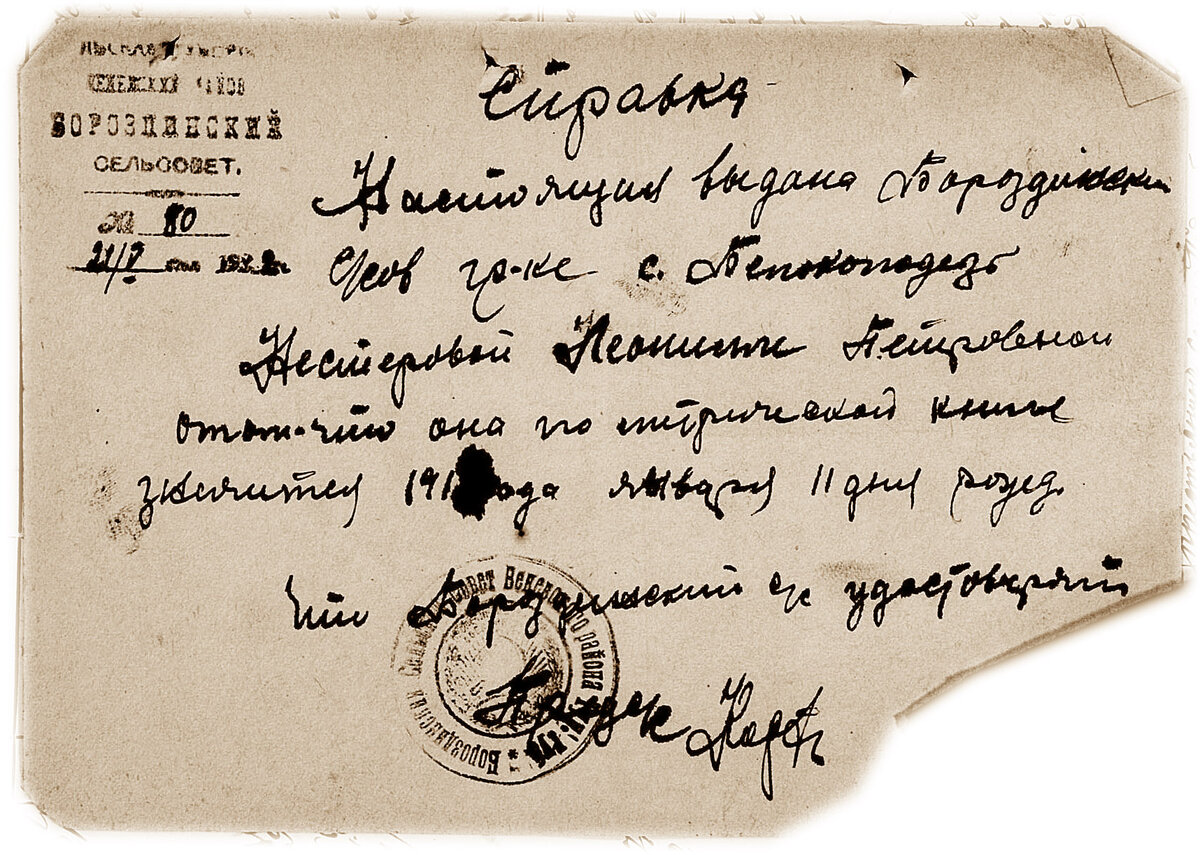 БОРОЗДИНСКИЙ
СЕЛЬСОВЕТ.
№ 80
21/V 193
Справка
Настоящая выдана Бороздински
гр-ке с. Белоколодезь
Нестеровой Леониле Петровной
о том что она по метрической книге
значится 191 ода января 11 дня рожд.
Что Бороздинский с/с удостоверяит
Бороздинский Сельский Совет Веневского района
Предс/с